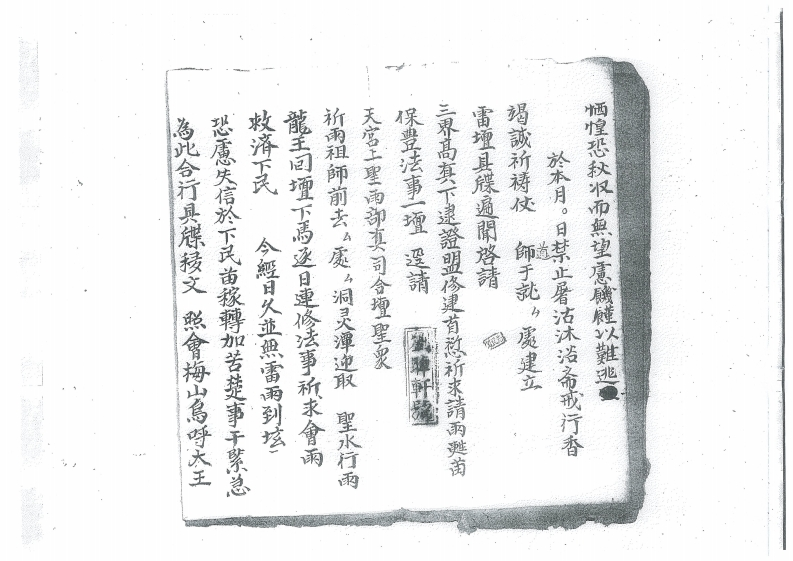 恓惶恐秋収而無望慮饑饉以難逃
於本月。日禁止屠沽沐浴斋戒行香
竭誠祈禱伇道師于就厶處建立
雷壇具牒遍聞啓請
三界高真下逮證盟修建首愆祈求請雨甦苗
保豊法事一壇 迎請
天宮上聖雨部真司合壇聖衆
祈雨祖師前去厶處厶洞灵潭迎取 聖水行雨
龍王回壇下馬逐日連修法事祈求會雨
救濟下民 今經日久並無雷雨到垓
恐慮失信於下民苗稼轉加苦楚事干緊急
為此合行具牒移文 照會梅山烏呼大王
軒號